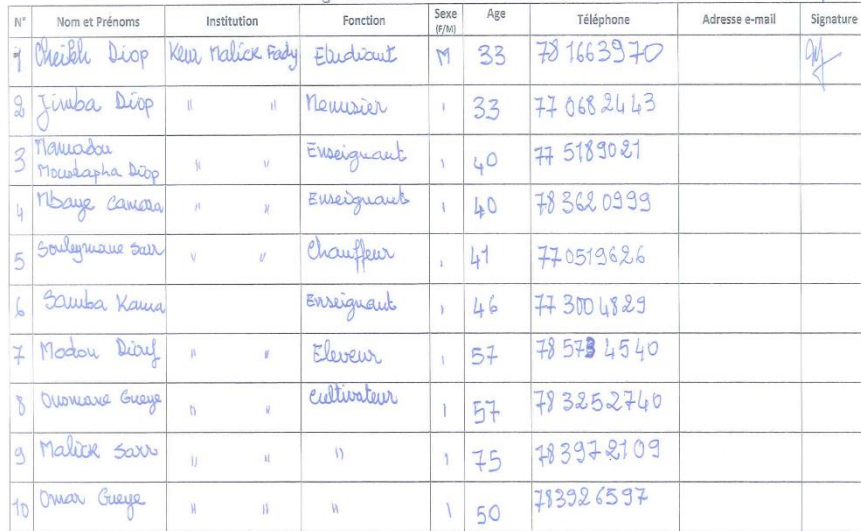 N° Nom et Prénoms Institution Fonction Sexe (F/M) Age Téléphone Adresse e-mail Signature
1 Cheikh Diop Keur Malick Fady Etudiant M 33 78 1663970
2 Jimba Diop " " Menusier ı 33 77 068 24 43
3 Mamadou Moustapha Diop " " Enseignant ı 40 77 5189021
4 Mbaye Camara " " Enseignant ı 40 78 362 0999
5 Souleymane Sarr " " Chauffeur ı 41 77 0519626
6 Samba Kama Enseignant ı 46 77 300 4829
7 Modou Diouf " " Eleveur ı 57 78 573 4540
8 Ousmane Gueye " " cultivateur ı 57 78 3252740
9 Malick Sarr " " " ı 75 78 397 21 09
10 Omar Gueye " " " ı 50 78392 6597